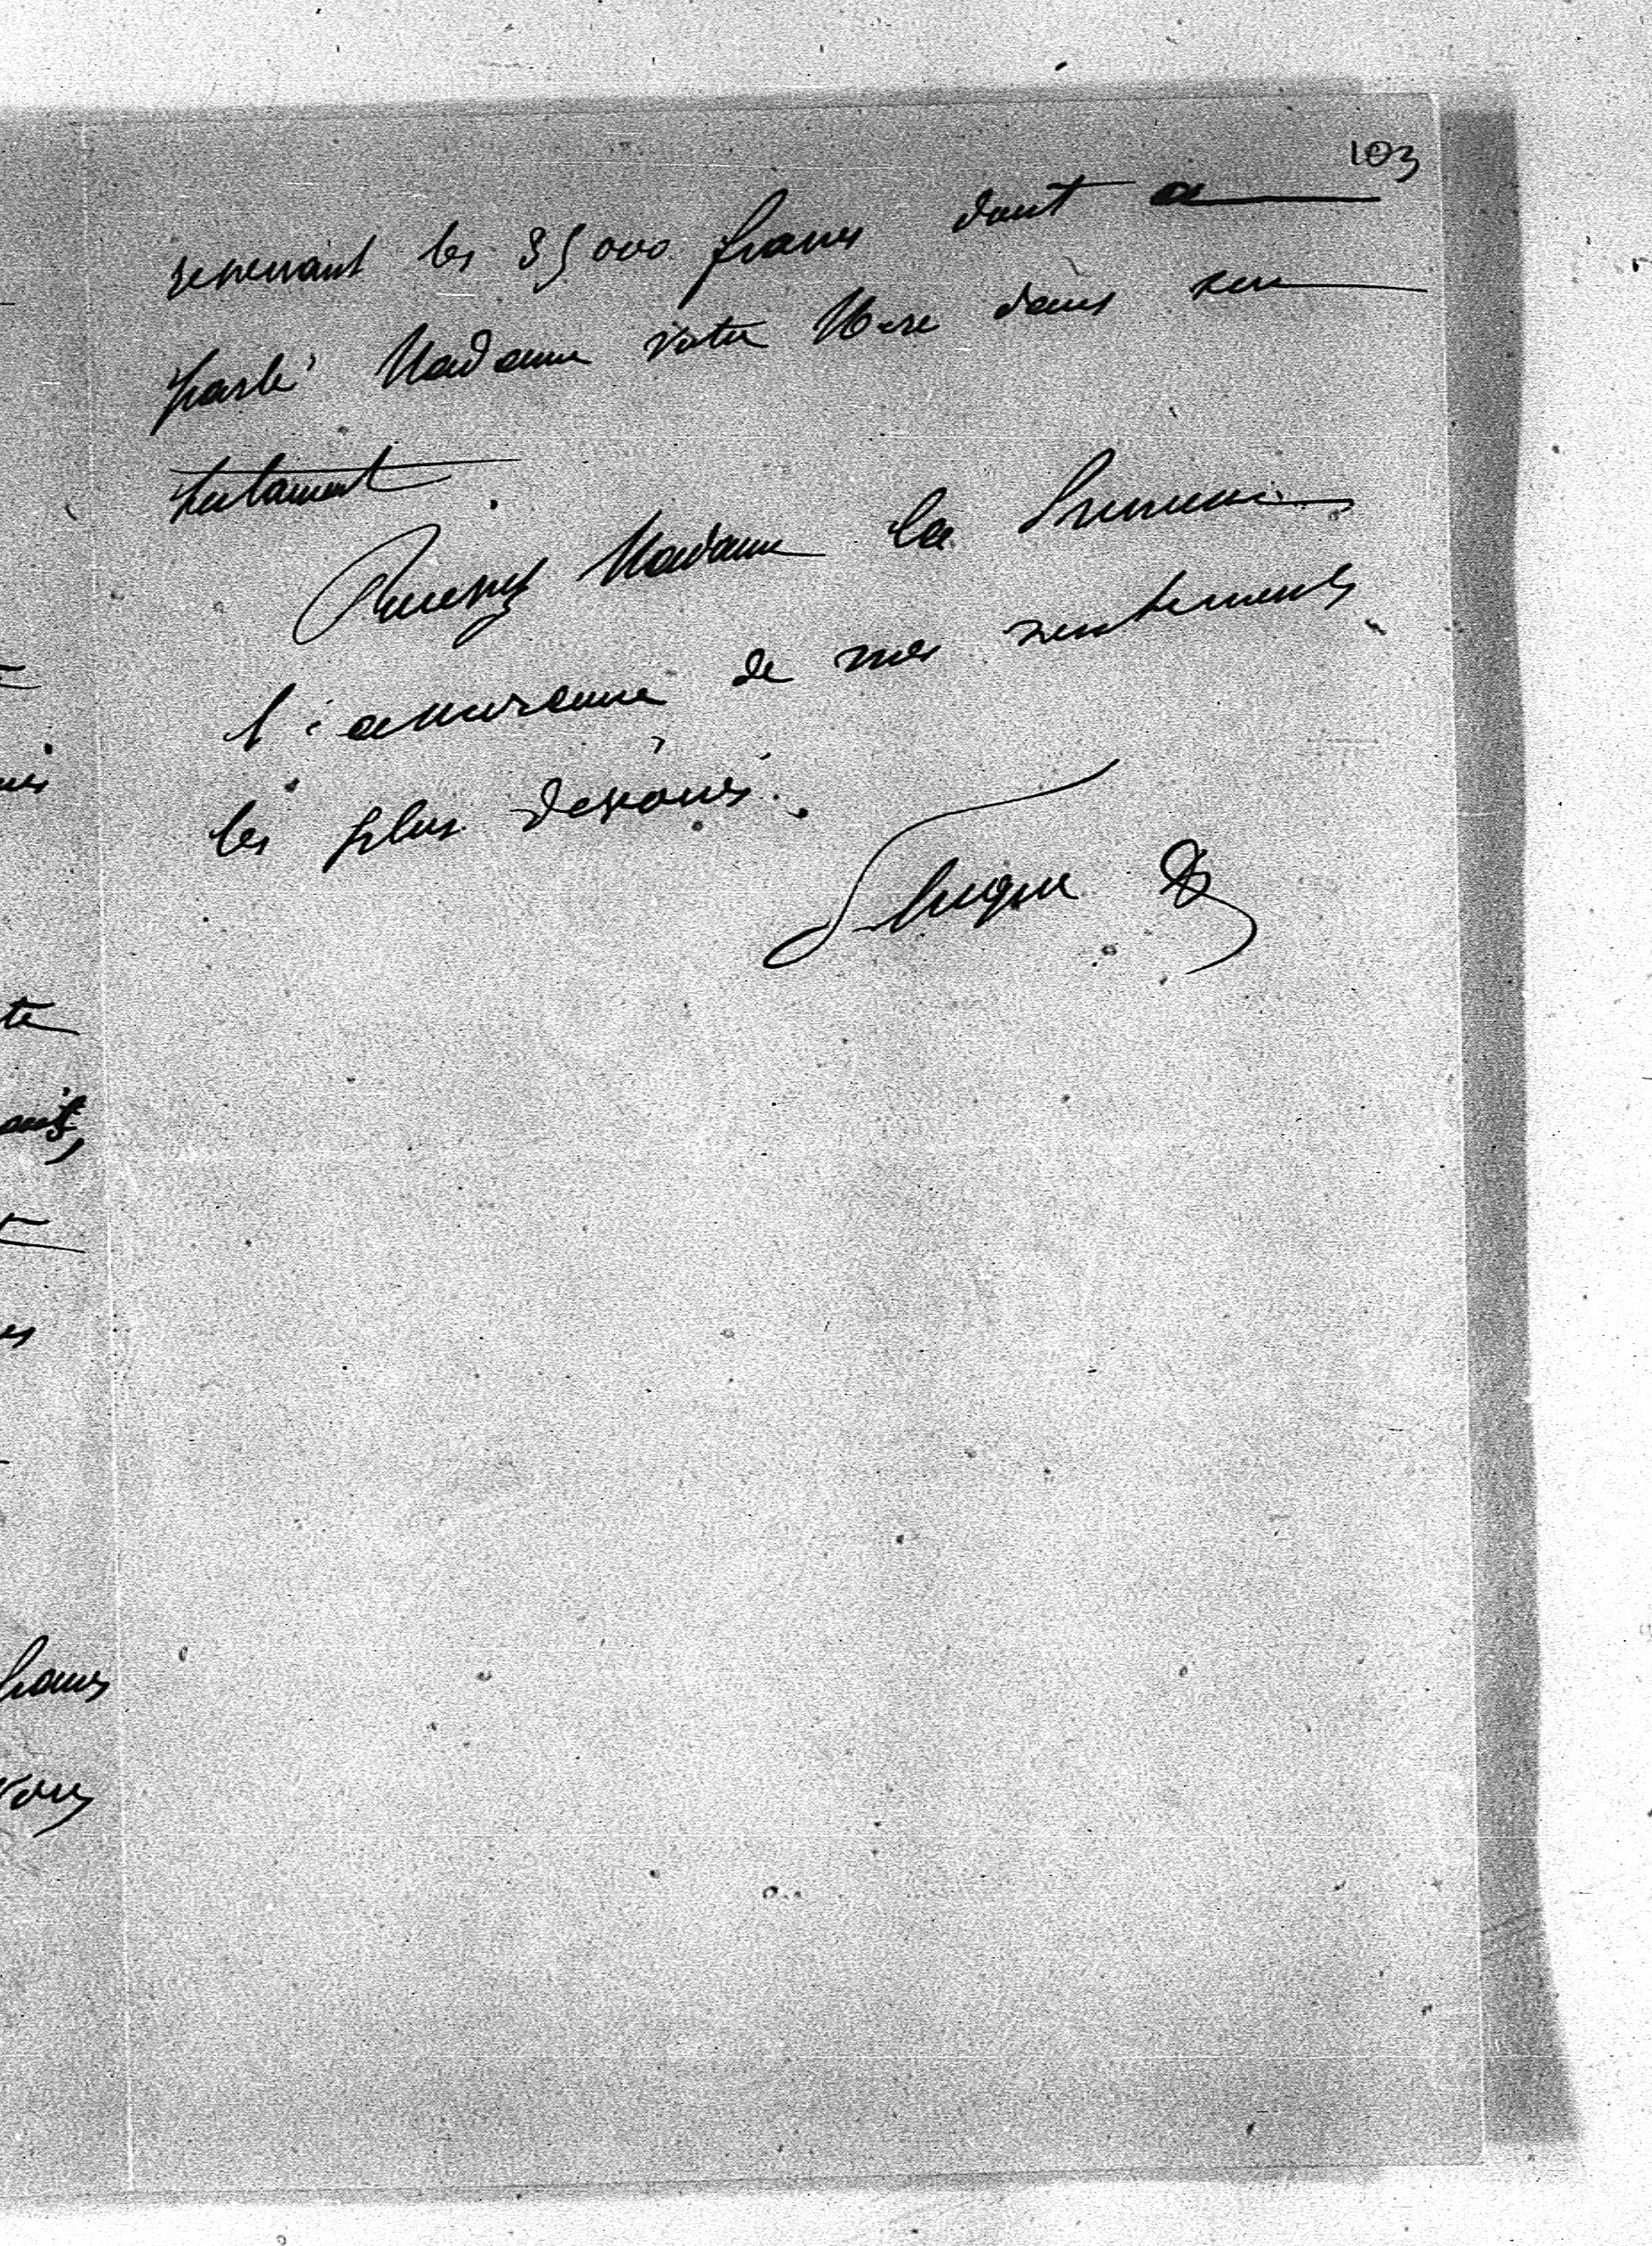 103
revenant les 35000 francs dont a
parlé Madame votre Mère dans son
testament.
Recevez Madame la Princesse
l'assurance de mes sentiments
les plus dévoués.
te
francs
vous